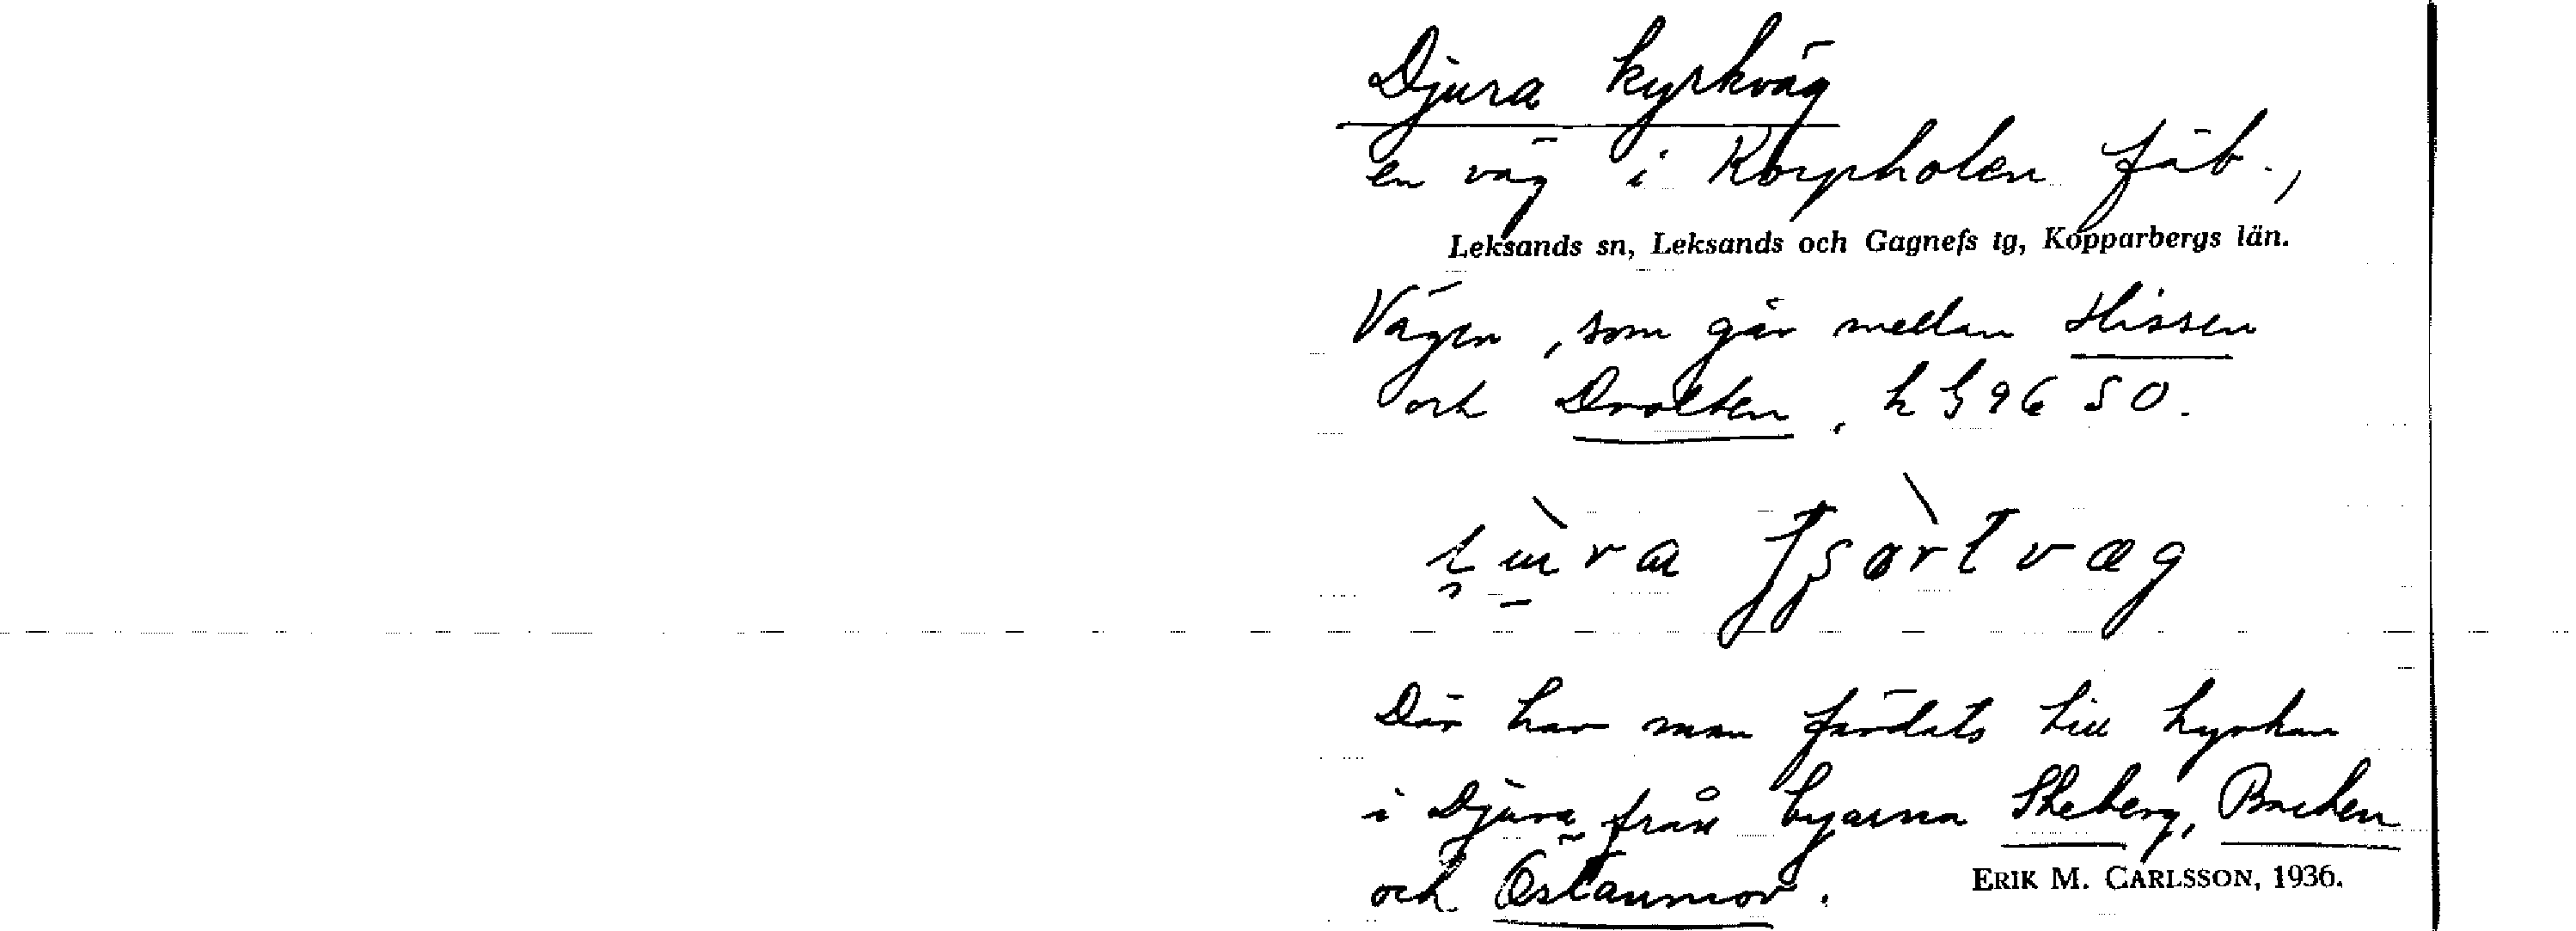 Djura kyrkväg
en väg i Korpholen fäb.,
Leksands sn, Leksands och Gagnefs tg, Kopparbergs län.
Vägen, som går mellan Hissen
och
Där har man färdats till kyrkan
i Djura från byarna Skeberg, Backen
och Östanmor.
ERIK M. CARLSSON, 1936.